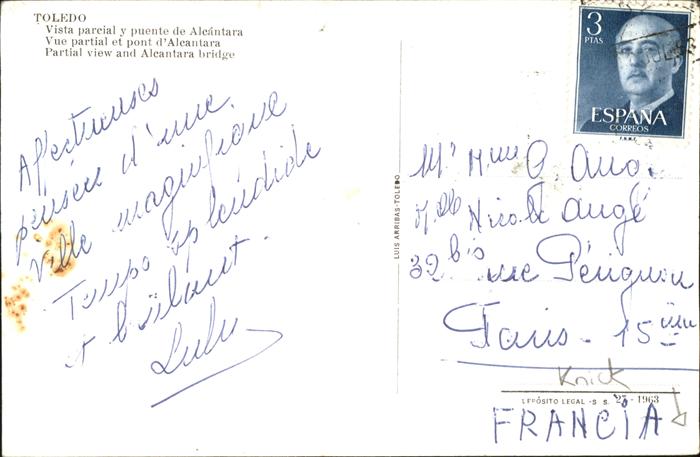 TOLEDO
Vista parcial y puente de Alcántara
Vue partial et pont d'Alcantara
Partial view and Alcantara bridge
Affectueuses
pensées d'une
Ville magnifique
Temps splendide
et brûlant.
Lulu
LUIS ARRIBAS-TOLEDO
3
PTAS
ESPAÑA
CORREOS
F.N.M.T.
Mr Mme G. Augé
Mlle Nicole Augé
32 bis rue Pérignon
Paris - 15 ème
Knick
DEPÓSITO LEGAL - S. S. - 1963
FRANCIA